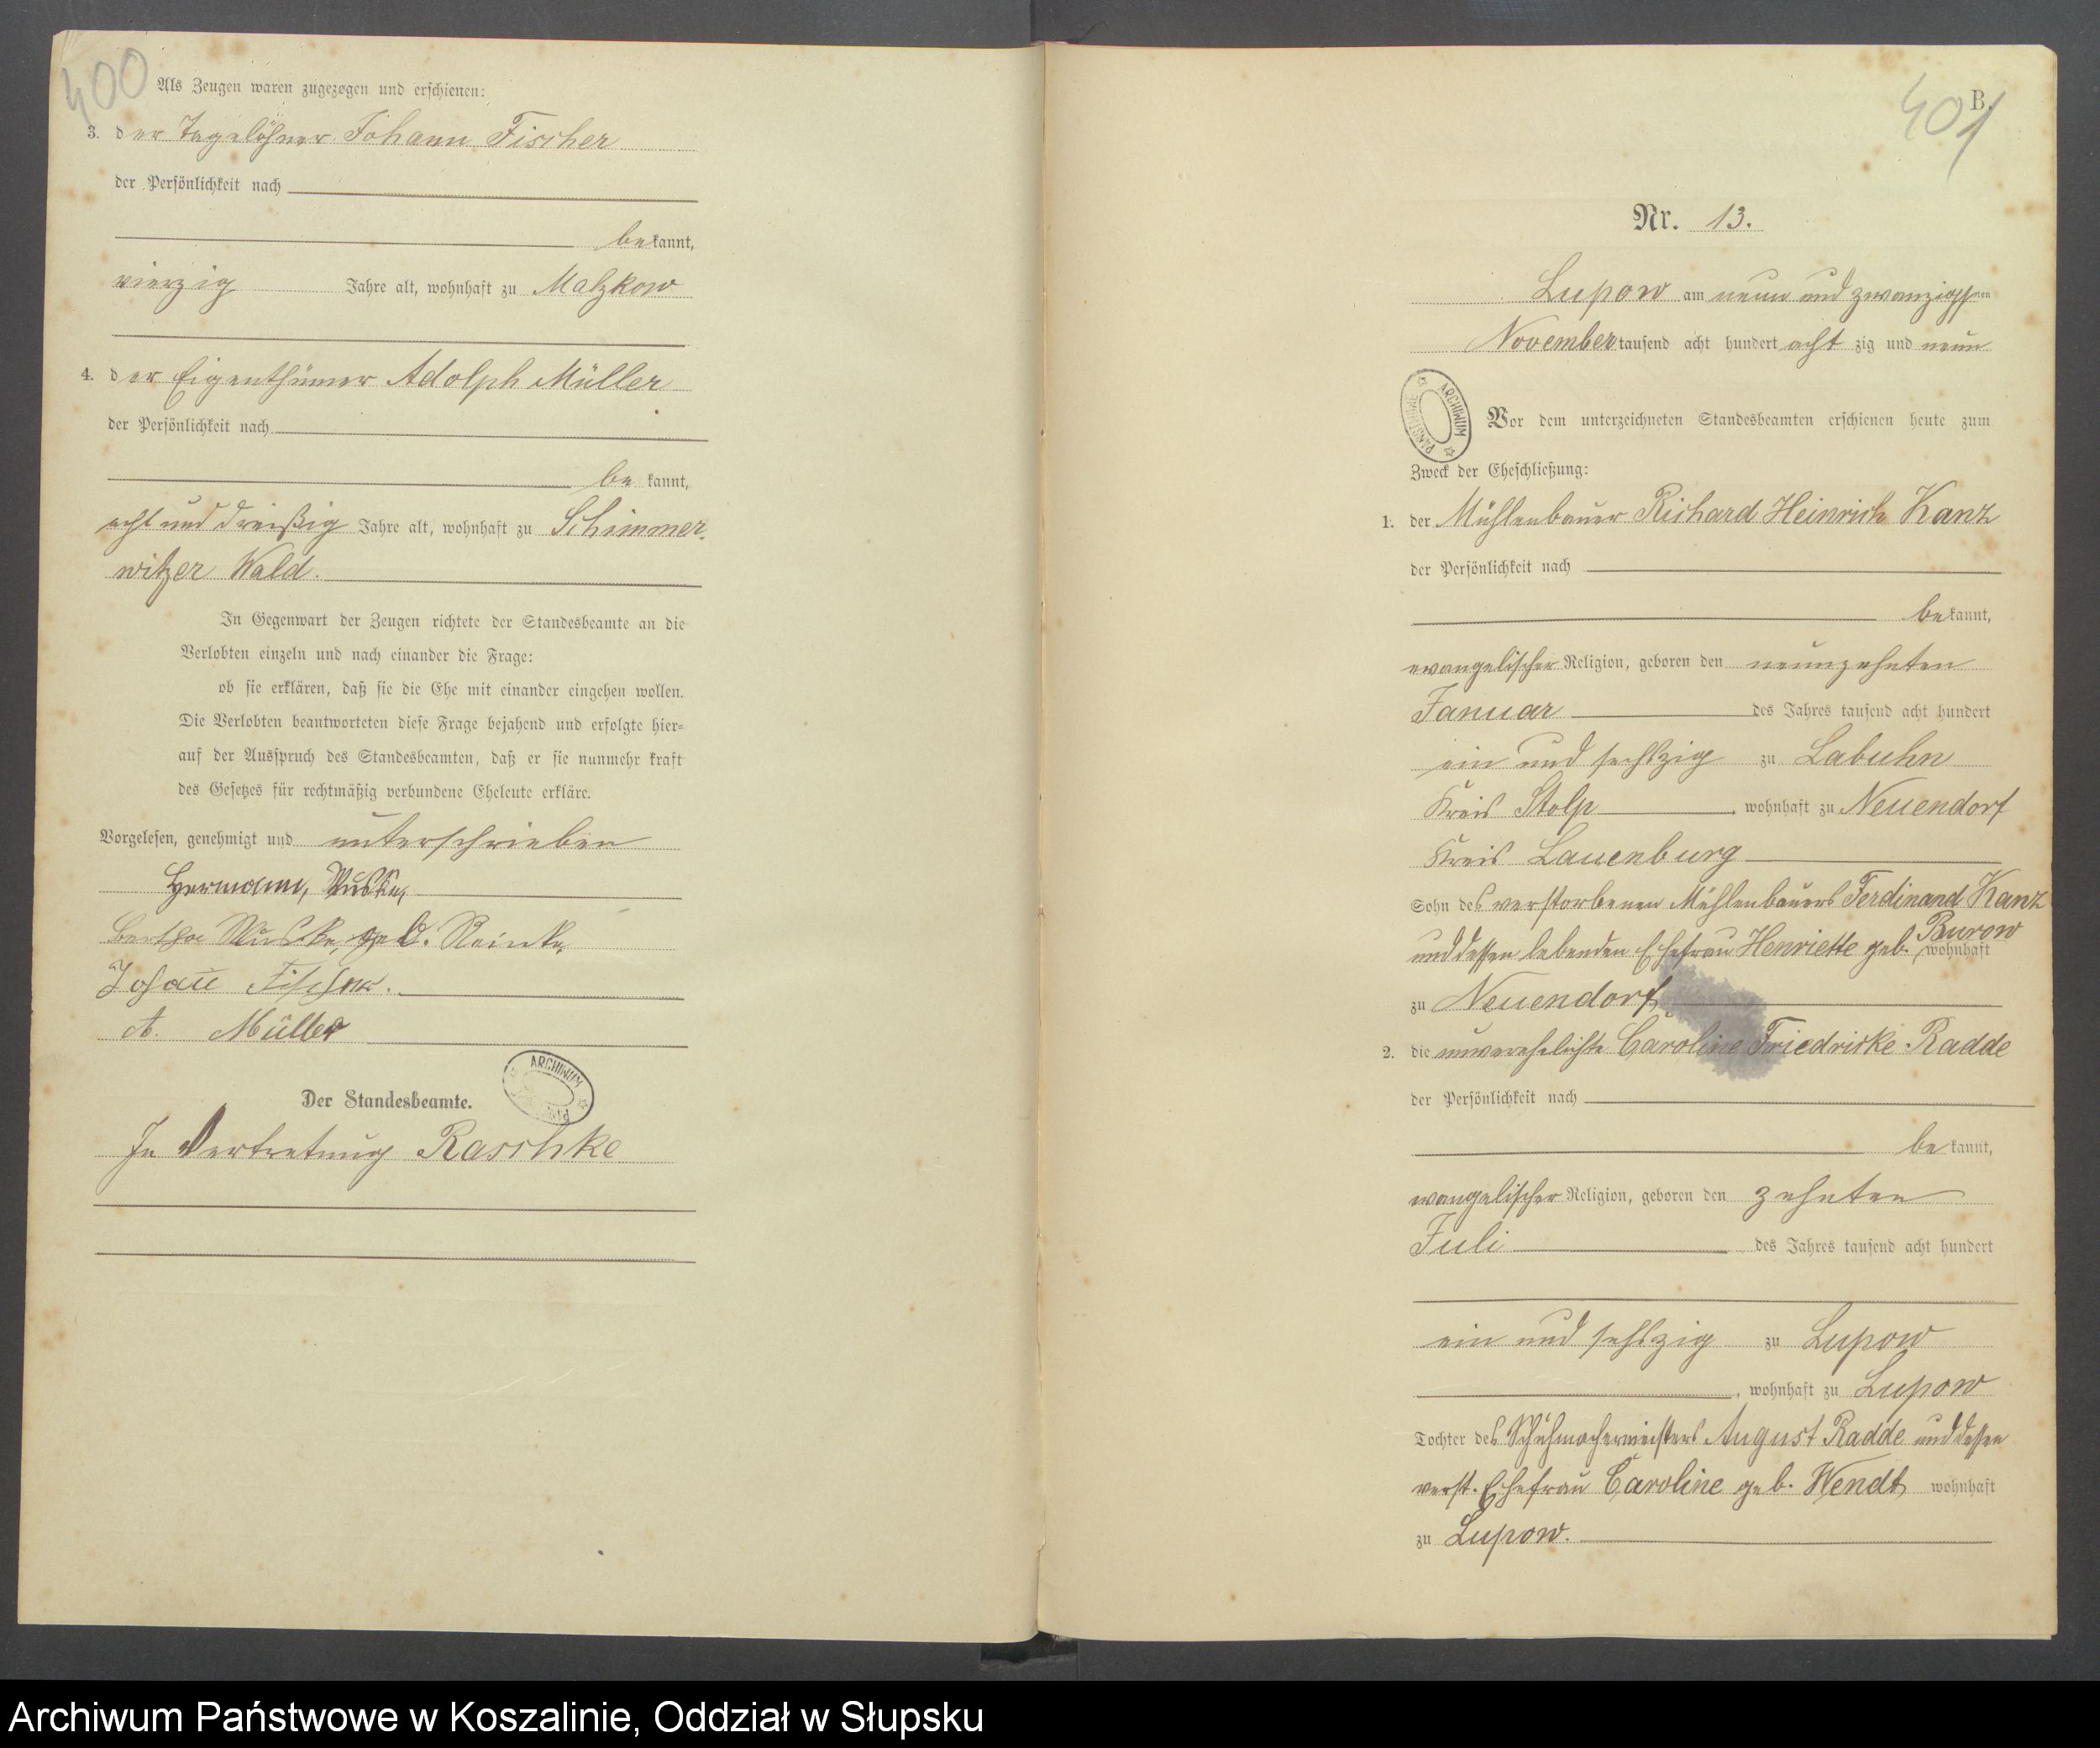 400
Als Zeugen waren zugezogen und erschienen:
3. der Tagelöhner Johann Fischer
der Persönlichkeit nach
bekannt,
vierzig Jahre alt, wohnhaft zu Malzkow
4. der Eigenthümer Adolph Müller
der Persönlichkeit nach
be kannt,
acht und dreißig Jahre alt, wohnhaft zu Schimmer-
witzer Wald.
In Gegenwart der Zeugen richtete der Standesbeamte an die
Verlobten einzeln und nach einander die Frage:
ob sie erklären, daß sie die Ehe mit einander eingehen wollen.
Die Verlobten beantworteten diese Frage bejahend und erfolgte hier-
auf der Ausspruch des Standesbeamten, daß er sie nunmehr kraft
des Gesetzes für rechtmäßig verbundene Eheleute erkläre.
Vorgelesen, genehmigt und unterschrieben
Hermann,
geb.
Johann Fischer.
A. Müller
ARCHIWUM
Der Standesbeamte.
In Vertretung Raschke
B.
401
Nr. 13.
Lupow am neun und zwanzigsten
November tausend acht hundert acht zig und neun
ARCHIWUM PAŃSTWOWE
Vor dem unterzeichneten Standesbeamten erschienen heute zum
Zweck der Eheschließung:
1. der Mühlenbauer Richard Heinrich Kanz
der Persönlichkeit nach
bekannt,
evangelischer Religion, geboren den neunzehnten
Januar des Jahres tausend acht hundert
ein und sechszig zu Labuhn
Kreis Stolp, wohnhaft zu Neuendorf
Kreis Lauenburg
Sohn des verstorbenen Mühlenbauers Ferdinand Kanz
und dessen lebenden Ehefrau Henriette geb. Burow, wohnhaft
zu Neuendorf
2. die unverehelichte Caroline Friedricke Radde
der Persönlichkeit nach
be kannt,
evangelischer Religion, geboren den zehnten
Juli des Jahres tausend acht hundert
ein und sechszig zu Lupow
, wohnhaft zu Lupow
Tochter des Schuhmachermeisters August Radde und dessen
verst. Ehefrau Caroline geb. Wendt wohnhaft
zu Lupow.
Archiwum Państwowe w Koszalinie, Oddział w Słupsku